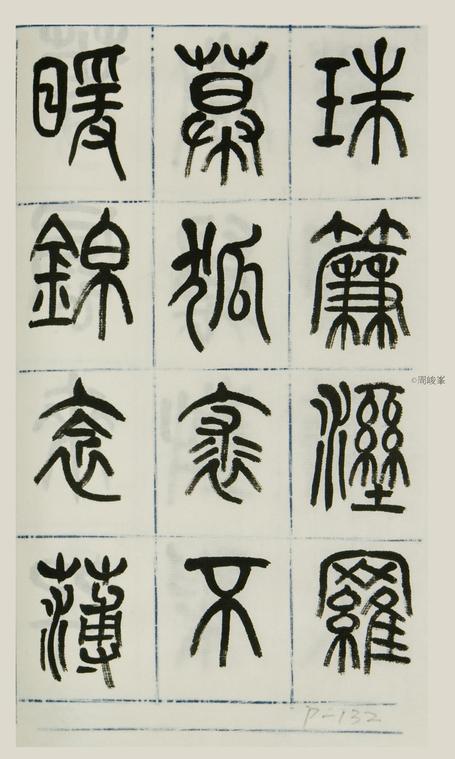 珠簾溼羅
幕狐裘不
暖錦衾薄
©周峻峯
P-132